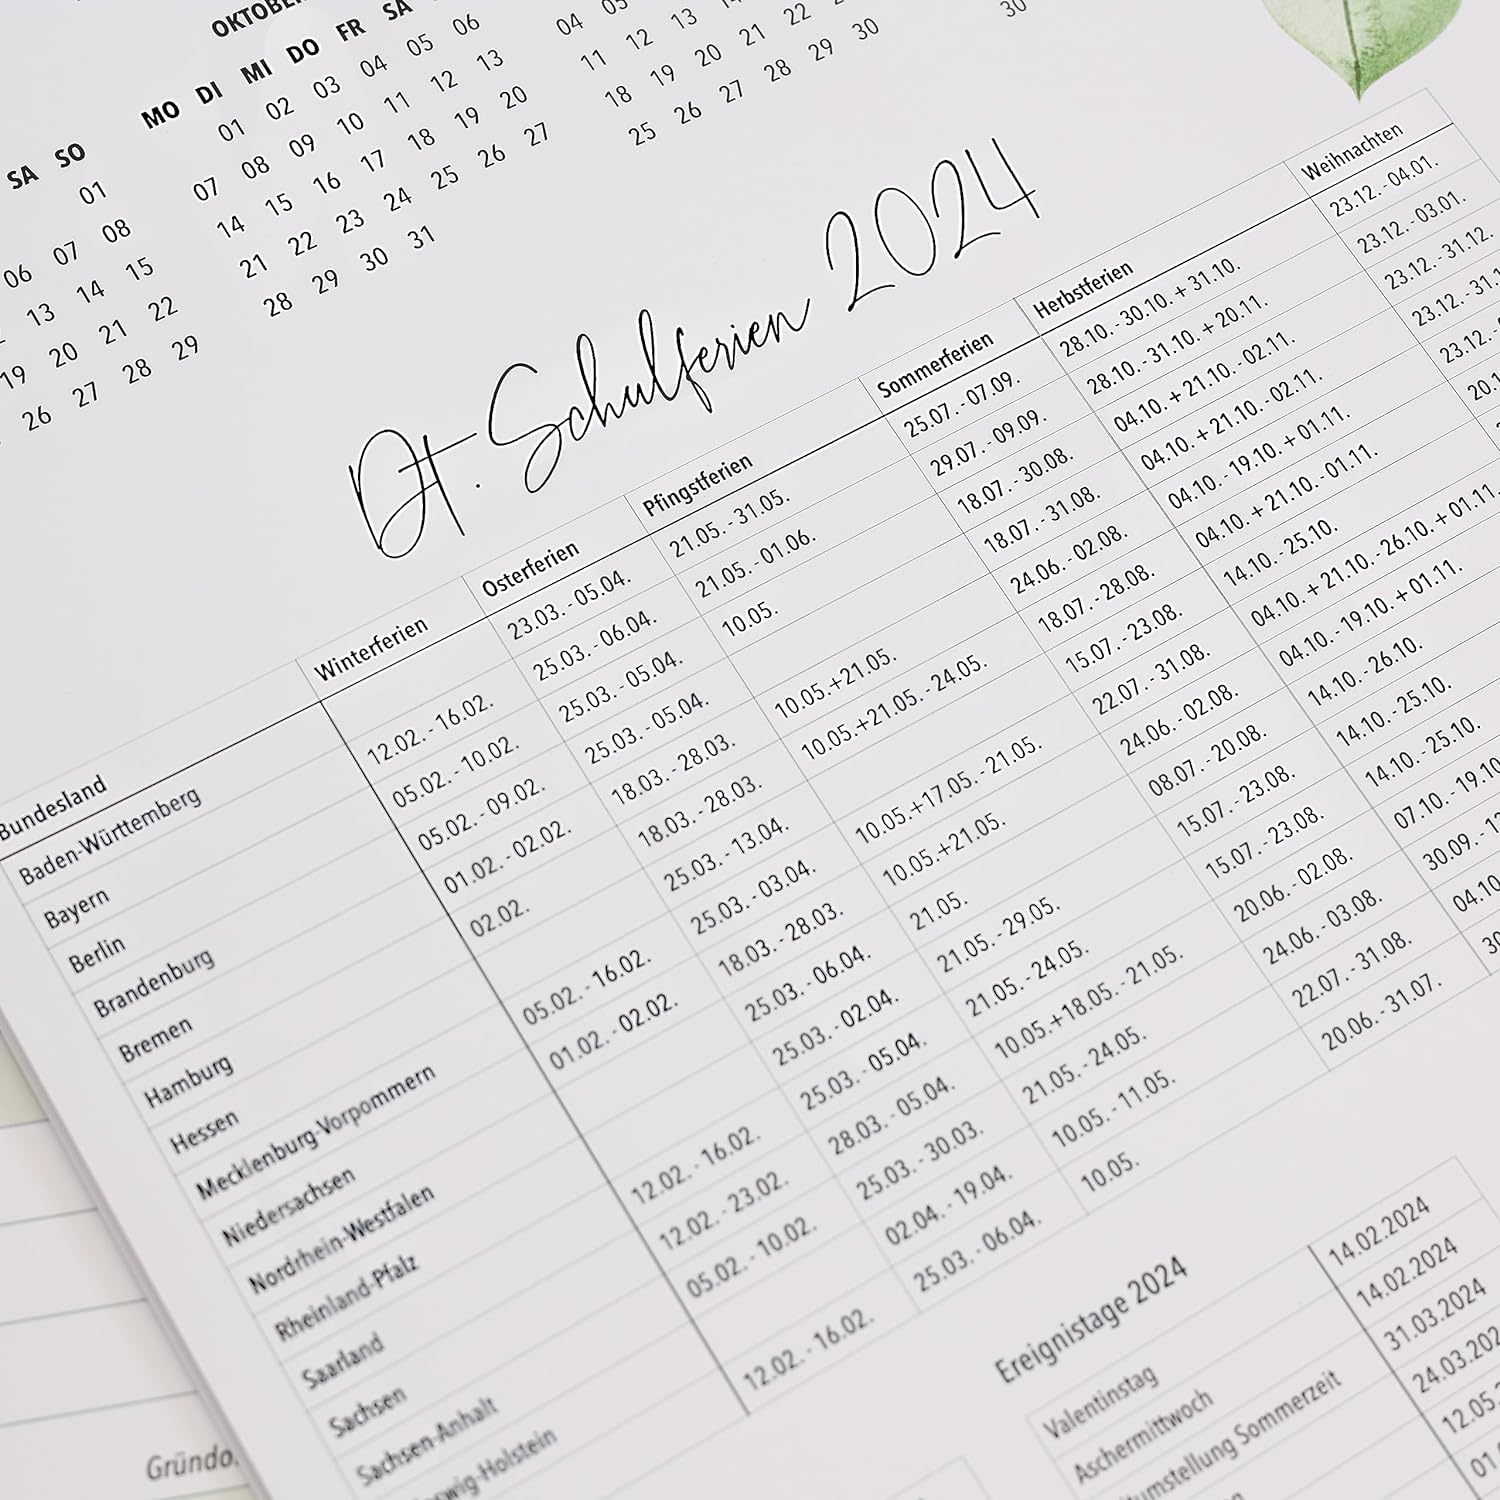 OKTOBER
SA SO
01
06 07 08
13 14 15
19 20 21 22
26 27 28 29
MO DI MI DO FR SA
01 02 03 04 05 06
07 08 09 10 11 12 13
14 15 16 17 18 19 20
21 22 23 24 25 26 27
28 29 30 31
04 05
11 12 13
18 19 20 21 22
25 26 27 28 29 30
30
Dt. Schulferien 2024
Bundesland Winterferien Osterferien Pfingstferien Sommerferien Herbstferien Weihnachten
Baden-Württemberg 23.03. - 05.04. 21.05. - 31.05. 25.07. - 07.09. 28.10. - 30.10. + 31.10. 23.12. - 04.01.
Bayern 12.02. - 16.02. 25.03. - 06.04. 21.05. - 01.06. 29.07. - 09.09. 28.10. - 31.10. + 20.11. 23.12. - 03.01.
Berlin 05.02. - 10.02. 25.03. - 05.04. 10.05. 18.07. - 30.08. 04.10. + 21.10. - 02.11. 23.12. - 31.12.
Brandenburg 05.02. - 09.02. 25.03. - 05.04. 18.07. - 31.08. 04.10. + 21.10. - 02.11. 23.12. - 31.1
Bremen 01.02. - 02.02. 18.03. - 28.03. 10.05.+21.05. 24.06. - 02.08. 04.10. - 19.10. + 01.11. 23.12. -
Hamburg 02.02. 18.03. - 28.03. 10.05.+21.05. - 24.05. 18.07. - 28.08. 04.10. + 21.10. - 01.11. 20.1
Hessen 25.03. - 13.04. 15.07. - 23.08. 14.10. - 25.10.
Mecklenburg-Vorpommern 05.02. - 16.02. 25.03. - 03.04. 10.05.+17.05. - 21.05. 22.07. - 31.08. 04.10. + 21.10. - 26.10. + 01.11.
Niedersachsen 01.02. - 02.02. 18.03. - 28.03. 10.05.+21.05. 24.06. - 02.08. 04.10. - 19.10. + 01.11.
Nordrhein-Westfalen 25.03. - 06.04. 21.05. 08.07. - 20.08. 14.10. - 26.10.
Rheinland-Pfalz 25.03. - 02.04. 21.05. - 29.05. 15.07. - 23.08. 14.10. - 25.10.
Saarland 12.02. - 16.02. 25.03. - 05.04. 21.05. - 24.05. 15.07. - 23.08. 14.10. - 25.10.
Sachsen 12.02. - 23.02. 28.03. - 05.04. 10.05.+18.05. - 21.05. 20.06. - 02.08. 07.10. - 19.10
Sachsen-Anhalt 05.02. - 10.02. 25.03. - 30.03. 21.05. - 24.05. 24.06. - 03.08. 30.09. - 1
swig-Holstein 02.04. - 19.04. 10.05. - 11.05. 22.07. - 31.08. 04.10
12.02. - 16.02. 25.03. - 06.04. 10.05. 20.06. - 31.07. 30
Ereignistage 2024
Valentinstag 14.02.2024
Aschermittwoch 14.02.2024
tumstellung Sommerzeit 31.03.2024
24.03.202
12.05.
01
Gründo